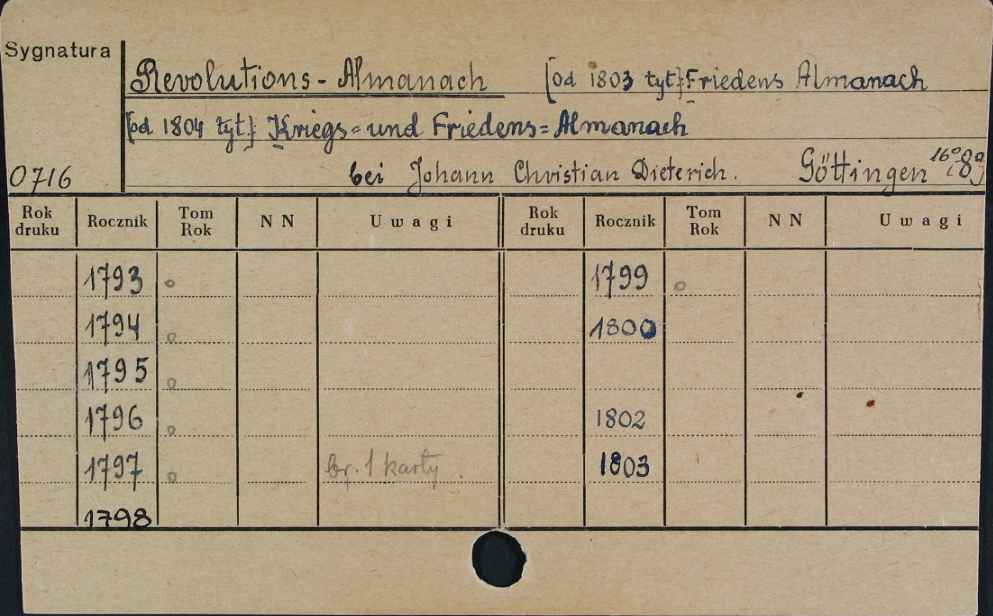 Sygnatura
Revolutions - Almanach [od 1803 tyt] Friedens Almanach
[od 1804 tyt] Kriegs= und Friedens=Almanach
0716 bei Johann Christian Dieterich. Göttingen 16°
Rok druku Rocznik Tom Rok NN Uwagi Rok druku Rocznik Tom Rok NN Uwagi
1793 1799
1794 1800
1795
1796 1802
1797 br. 1 karty. 1803
1798